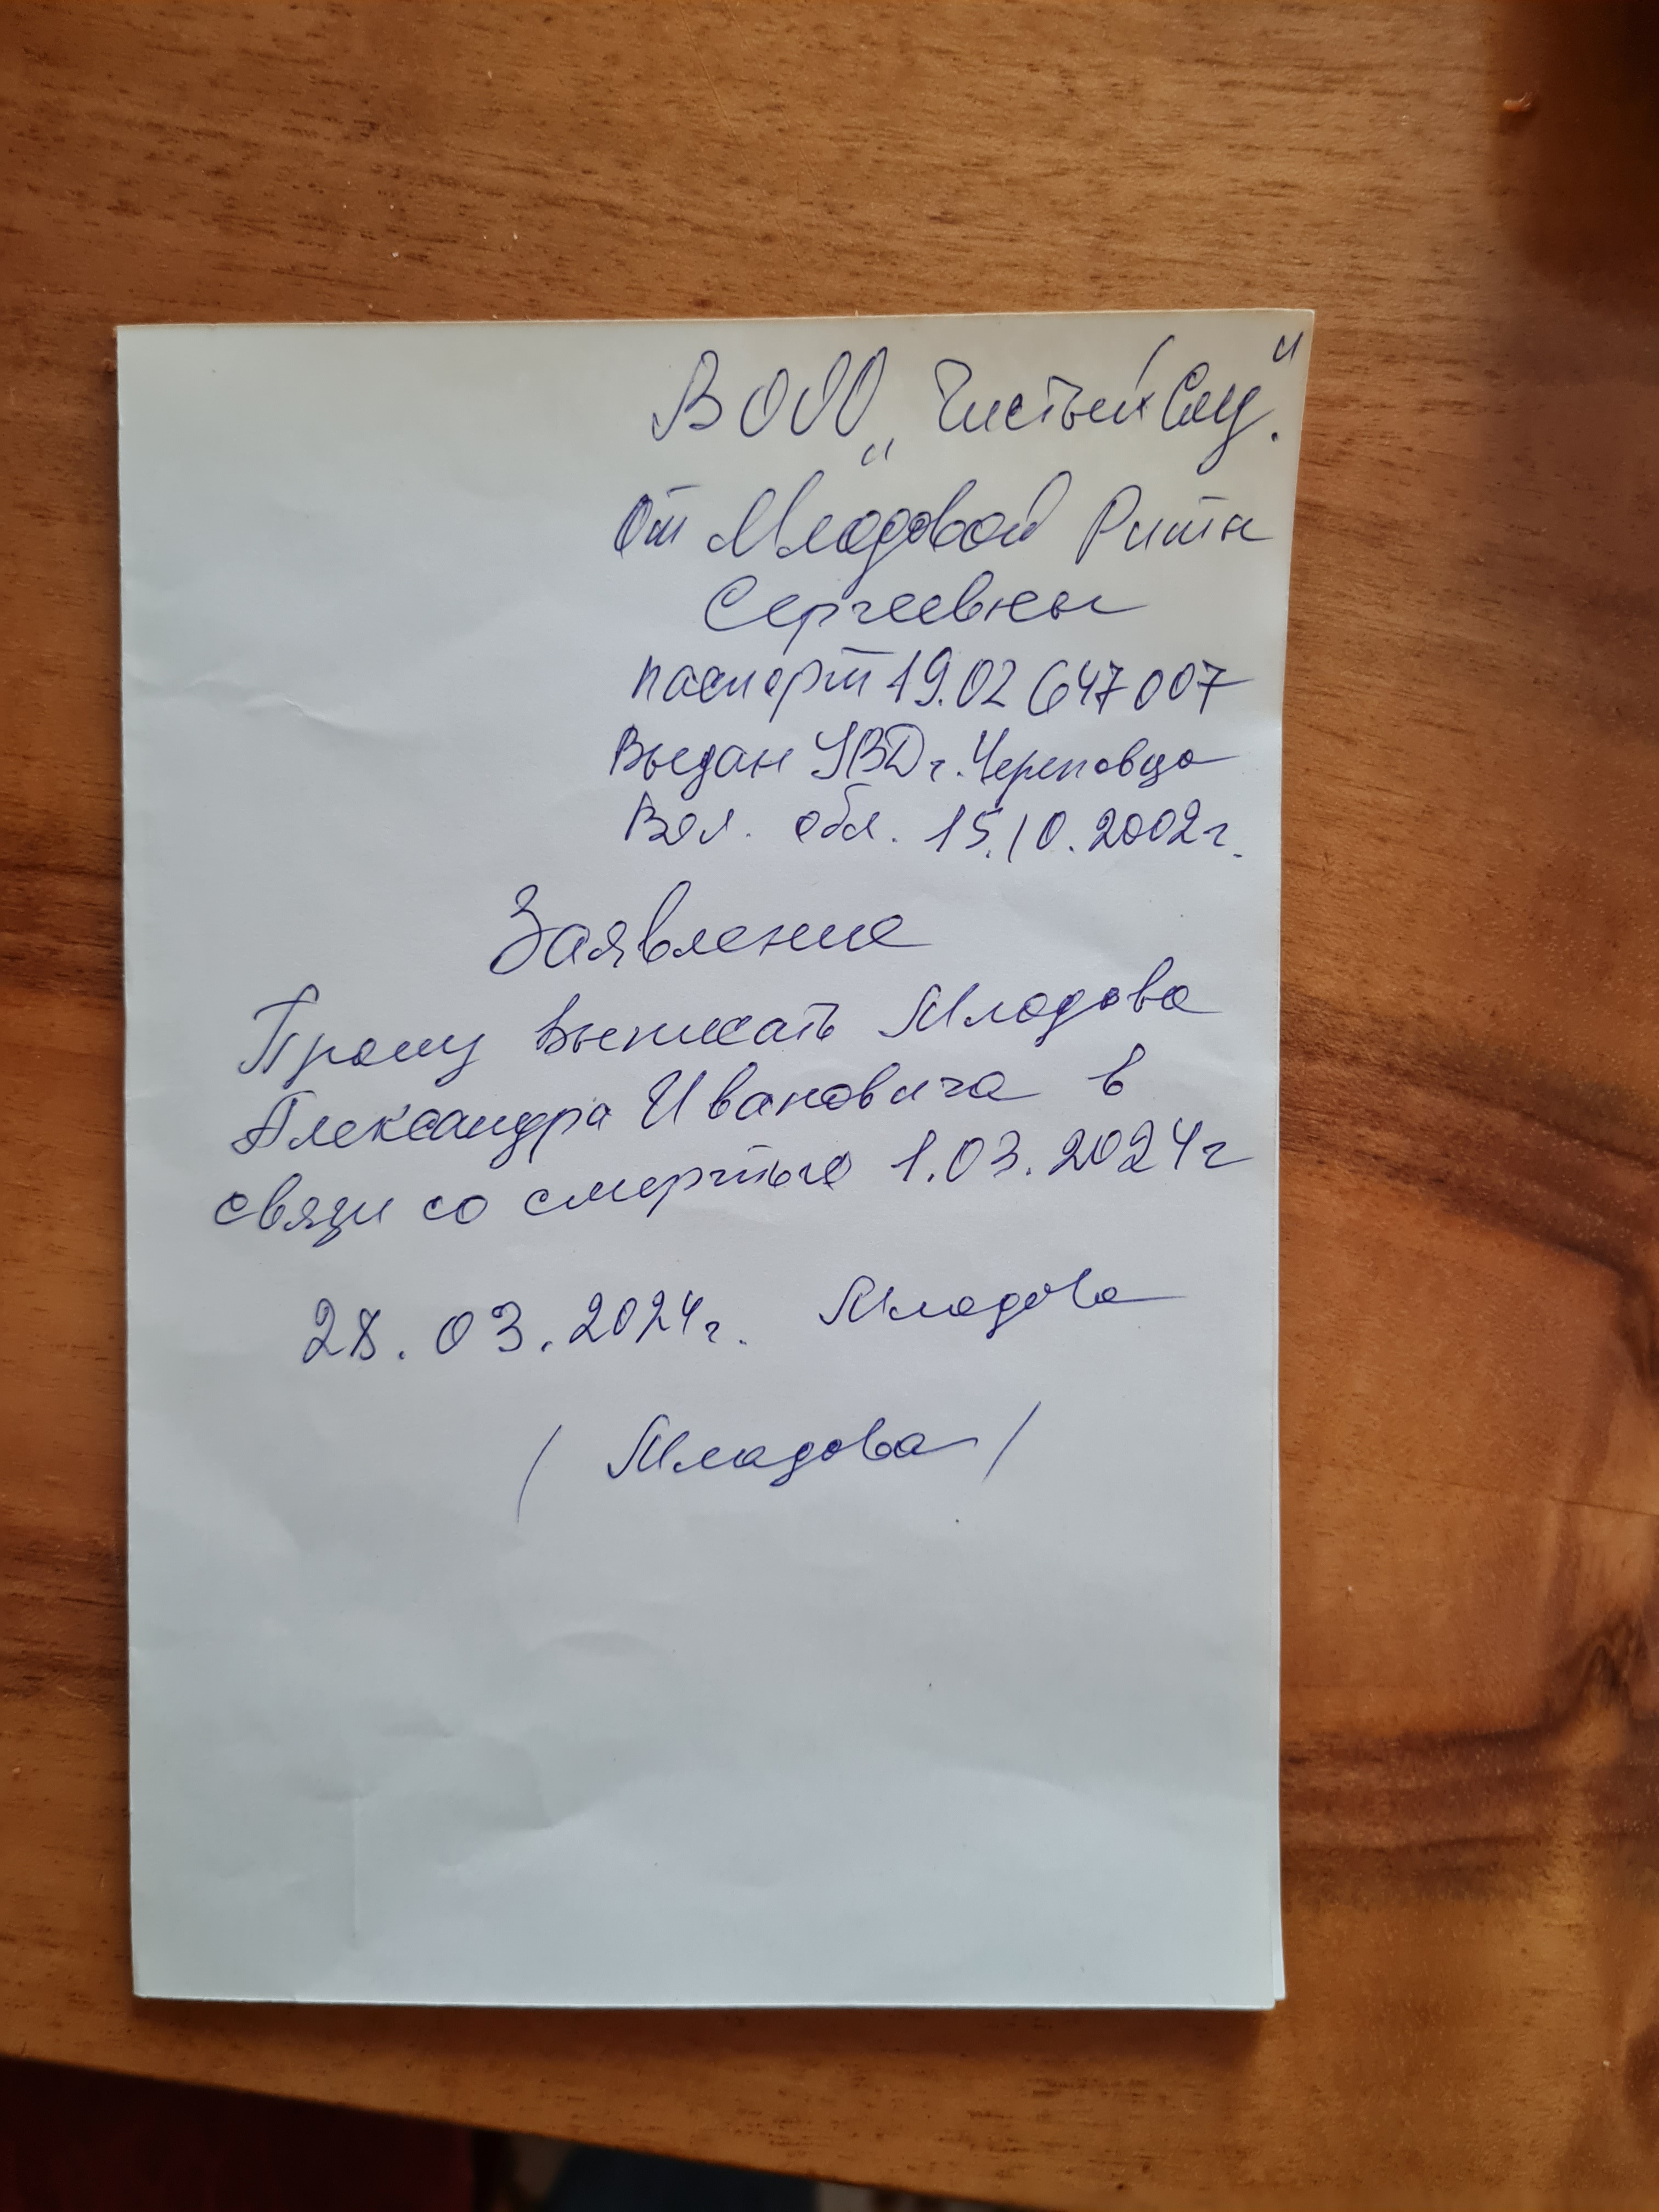 В ООО „Чистый След."
от Младовой Риты
Сергеевны
паспорт 19.02 647007
Выдан УВД г. Череповца
Вол. обл. 15.10.2002г.
Заявление
Прошу выписать Младова
Александра Ивановича в
связи со смертью 1.03.2024г
28.03.2024г. Младова
(Младова)